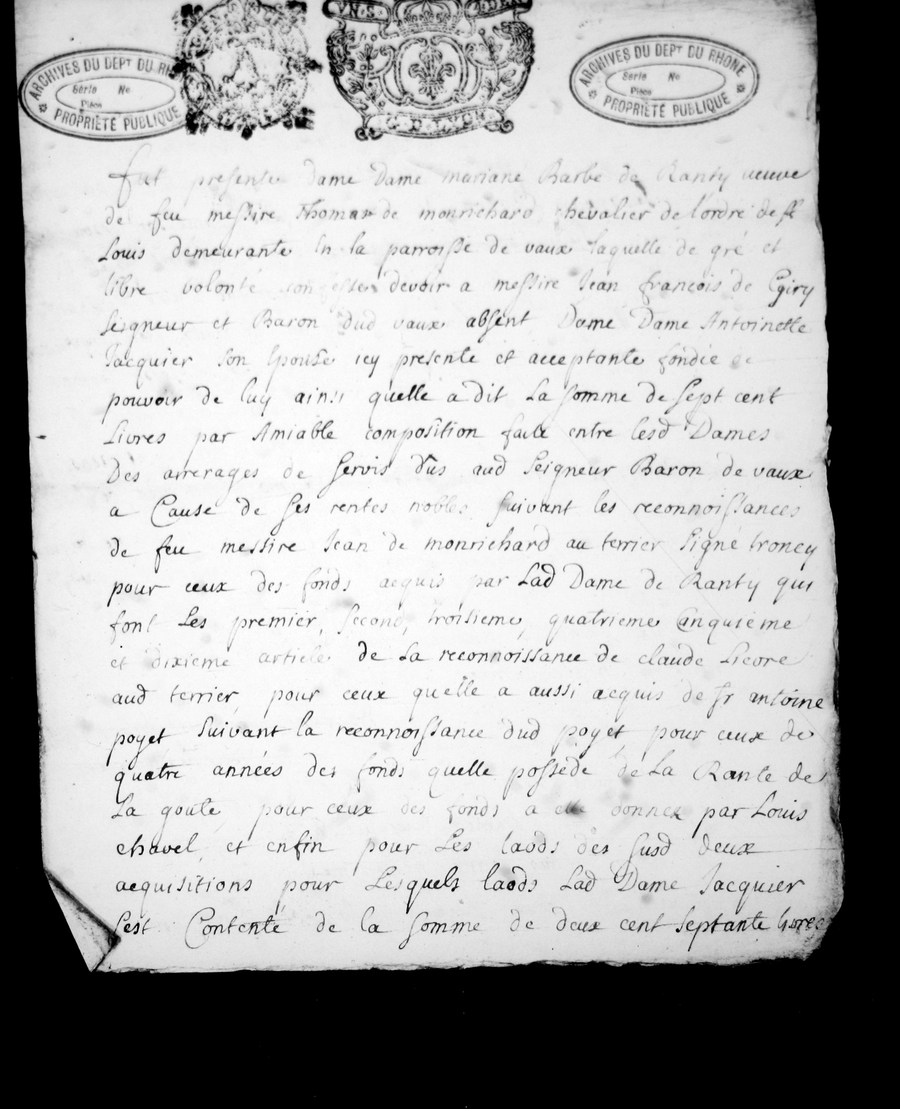 ARCHIVES DU DEPT DU RH
Série No
Pièce
PROPRIÉTÉ PUBLIQUE
G. D. LYON
ARCHIVES DU DEPT DU RHONE
Série No
Pièce
PROPRIÉTÉ PUBLIQUE
fut presente dame Dame mariane Barbe de Ranty veuve
de feu messire Thomas de monrichard chevalier de l'ordre de st
Louis demeurante En la parroisse de vaux laquelle de gré et
libre volonté confesse devoir a messire Jean francois de Egiry
seigneur et Baron dud vaux absent Dame Dame Antoinette
Jacquier son Epouse icy presente et acceptante fondée de
pouvoir de luy ainsi quelle a dit La somme de sept cent
Livres par Amiable composition faite entre lesd Dames
Des arrerages de servis dûs aud seigneur Baron de vaux
a Cause de ses rentes nobles suivant les reconnoissances
de feu messire Jean de monrichard au terrier signe troncy
pour ceux des fonds acquis par Lad Dame de Ranty qui
font Les premier, second, troisieme, quatrieme Cinquieme
et dixieme article de La reconnoissance de claude Licore
aud terrier, pour ceux quelle a aussi acquis de fr antoine
poyet suivant la reconnoissance dud poyet, pour ceux de
quatre années des fonds quelle possede de La Rante de
La goute, pour ceux des fonds a elle donnez par Louis
chavel, et enfin pour Les laods des susd deux
acquisitions pour Lesquels laods Lad Dame Jacquier
s'est Contenté de la somme de deux cent septante livres